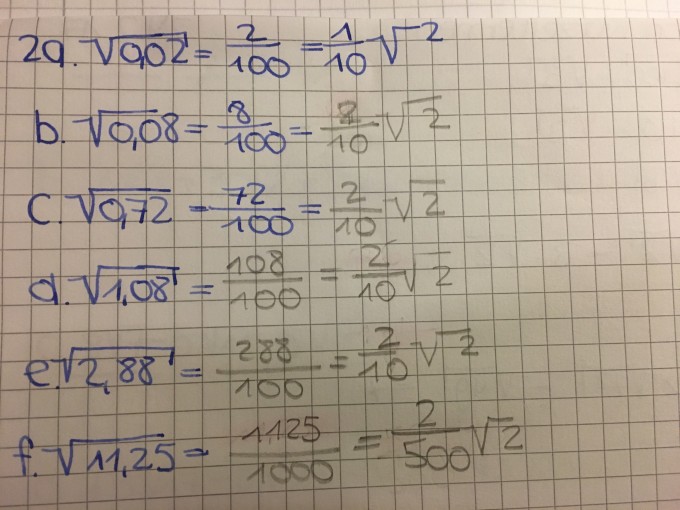 2a. √0,02 = 2/100 = 1/10 √2
b. √0,08 = 8/100 = 2/10 √2
c. √0,72 = 72/100 = 2/10 √2
d. √1,08 = 108/100 = 2/10 √2
e. √2,88 = 288/100 = 2/10 √2
f. √11,25 = 1125/1000 = 2/500 √2